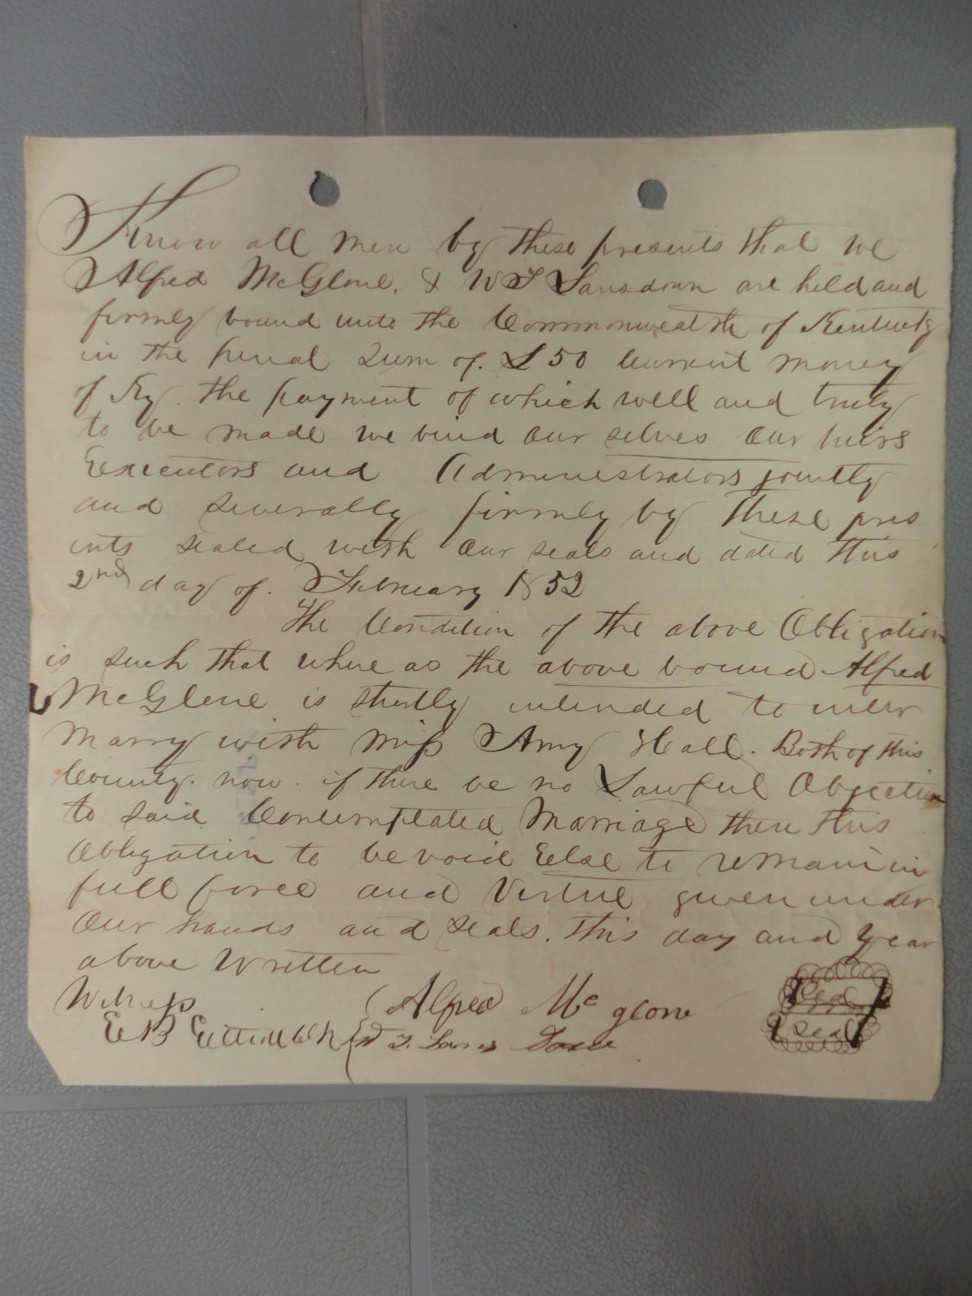 Know all men by these presents that we
Alfred McGlone, & W T Lansdown are held and
firmly bound unto the Commonwealth of Kentucky
in the penal Sum of. £50 Current money
of Ky. the payment of which well and truly
to be made we bind our selves our heirs
Executors and Administrators jointly
and severally firmly by these pres
ents sealed with our seals and dated this
2nd day of. February 1852
The Condition of the above Obligation
is such that where as the above bound Alfred
McGlone is shortly intended to inter
Marry with miss Amy Hall. Both of this
County. now. if there be no Lawful Objection
to said Contemplated Marriage then this
Obligation to be void Eelse to remain in
full force and Virtue given under
Our hands and Seals. this day and year
above Written
Witness Alfred Mc glone Seal
E B Seal